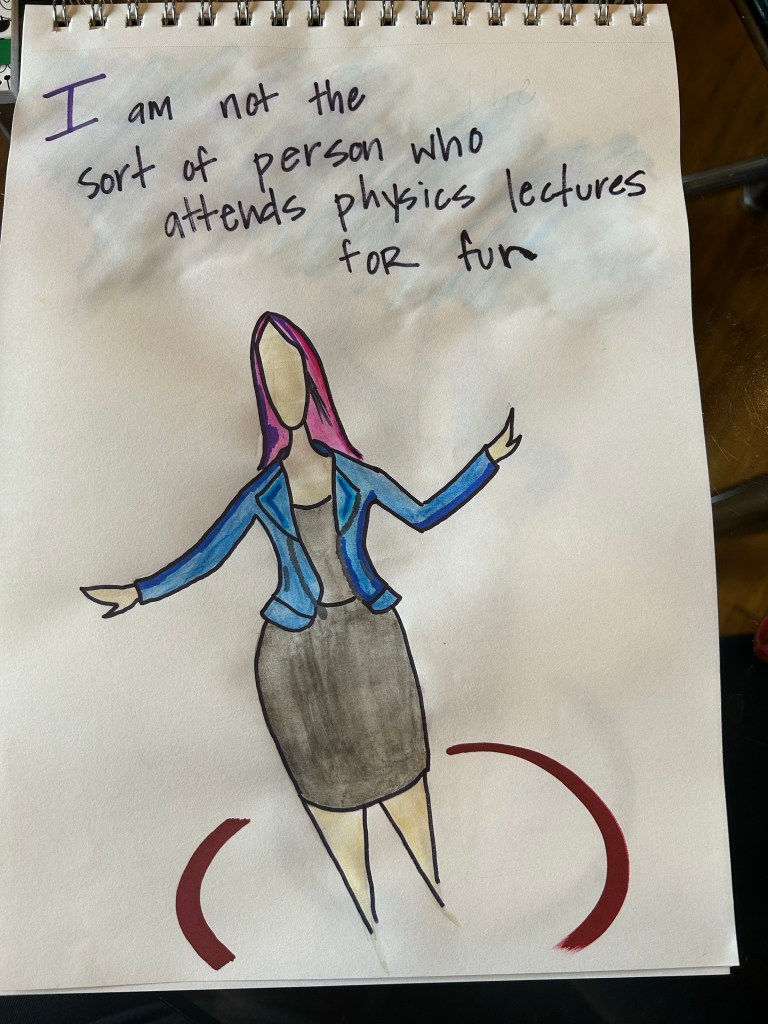 I am not the
sort of person who
attends physics lectures
for fun